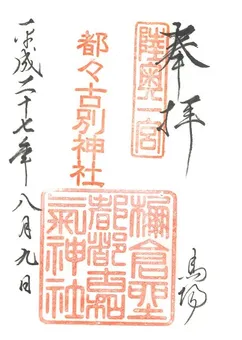 奉拝
陸奥一宮
馬場
都々古別神社
棚倉野
都都古和
氣神社
平成二十七年八月九日